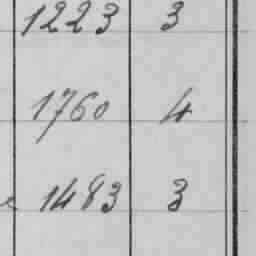 1223 3
1760 4
1483 3